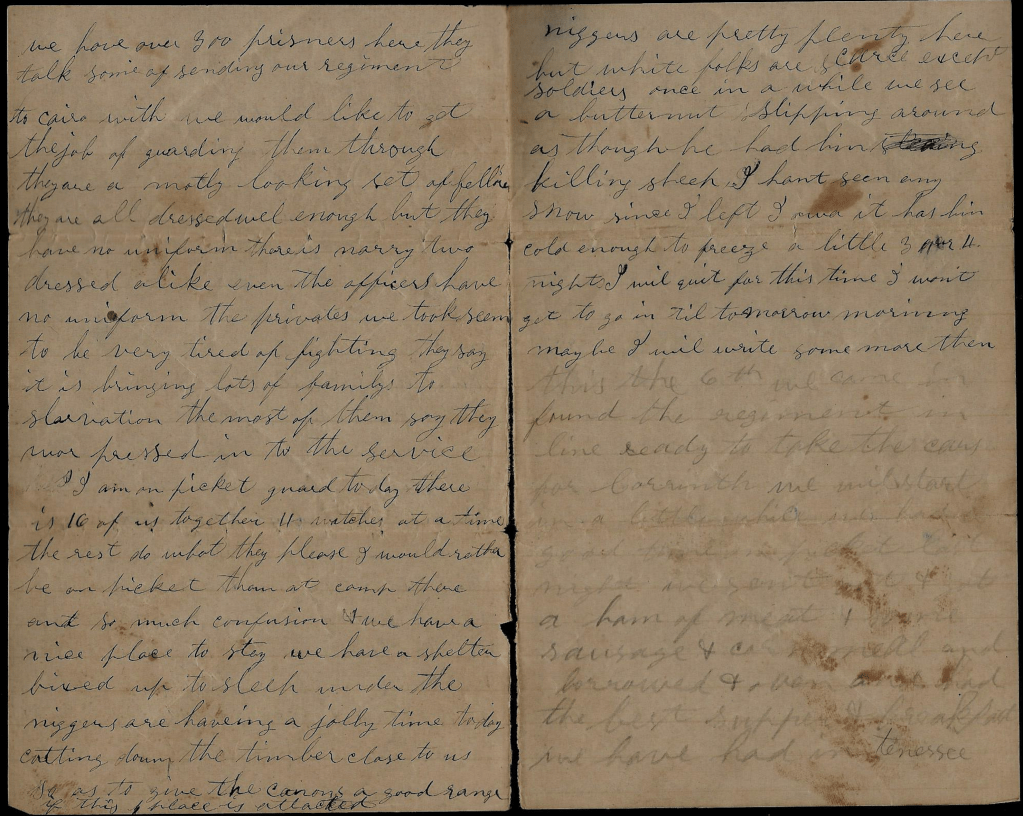 we have over 300 prisners here they
talk some of sending our regiment
to cairo with we would like to get
the job of guarding them through
they are a motly looking set of fellows
they are all dressed wel enough but they
have no uniform there is narry two
dressed alike even the officers have
no uniform the privates we took seem
to be very tired of fighting they say
it is bringing lots of familys to
starvation the most of them say they
wor pressed in to the service
I am on picket guard to day there
is 16 of us together 4 watches at a time
the rest do what they please I would rather
be on picket than at camp there
aint so much confusion & we have a
nice place to stay we have a shelter
bixed up to sleep under the
niggers are haveing a jolly time to day
cutting down the timber close to us
so as to give the canons a good range
if this place is attacked
niggers are pretty plenty here
but white folks are scarce except
soldiers once in a while we see
a butternut slipping around
as though he had bin
killing sheep I hant seen any
snow since I left Iowa it has bin
cold enough to freeze a little 3 or 4
nights I wil quit for this time I wont
get to go in til tomorrow morning
maybe I wil write some more then
this the 6th we came in
found the regiment in
line ready to take the cars
for Corrinth we wil start
in a little while we had a
good time on picket last
night we went out & got
a ham of meat & some
sausage & and
borrowed & a oven and had
the best supper & breakfast
we have had in tenessee